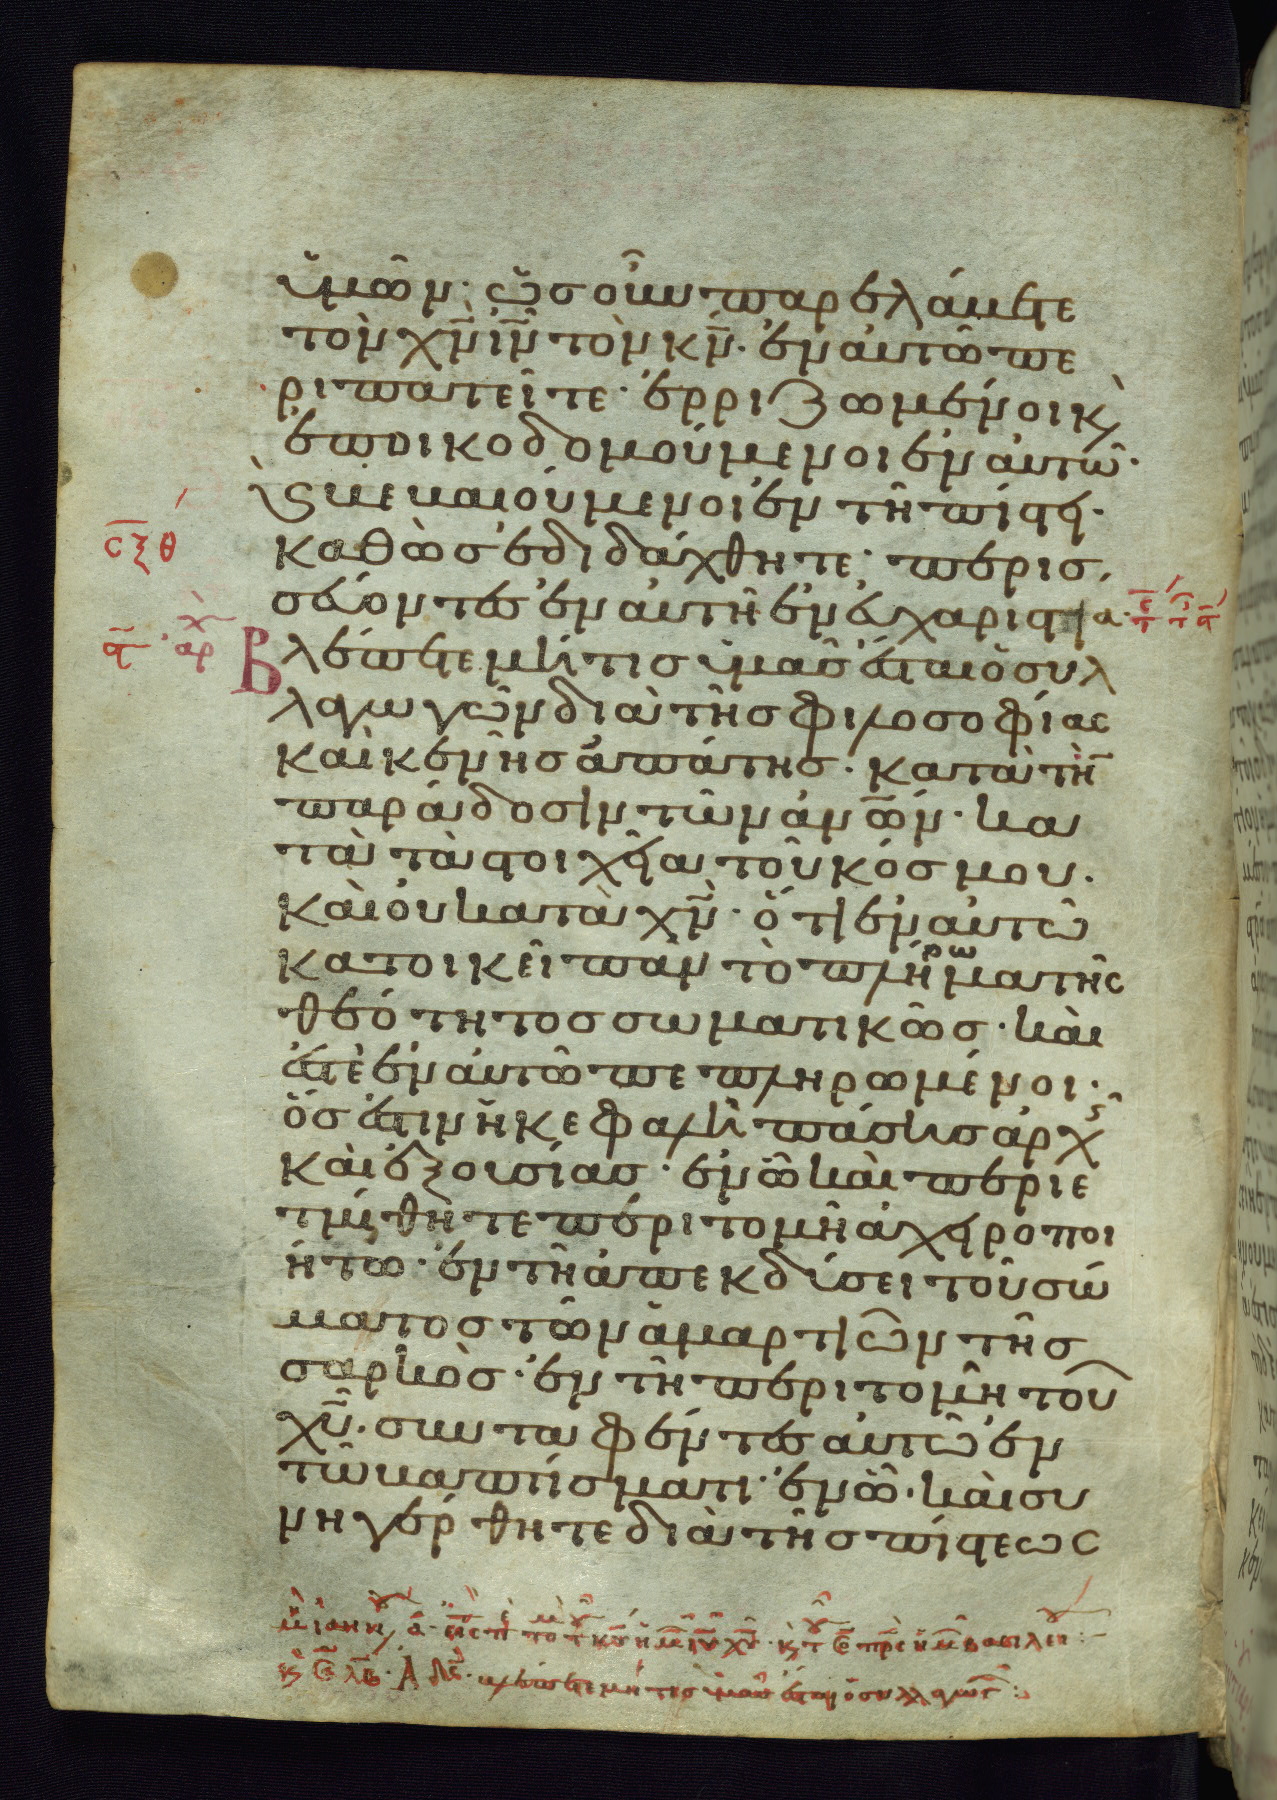 ὑμῶν· ὡς οὖν παρελάβετε
τὸν χ̅ν̅ ι̅ν̅ τὸν κ̅ν̅· ἐν αὐτῶ πε
ριπατεῖτε· ἐρριζωμένοι κ(αὶ)
ἐποικοδομούμενοι ἐν αὐτῶ·
κ(αὶ) βεβαιούμενοι ἐν τῆ πίστει·
καθὼς ἐδιδάχθητε· περισ
σεύοντες ἐν αὐτῆ ἐν εὐχαριστία·
σ̅ξ̅θ
ἀρχ
Βλέπετε μήτις ὑμᾶς ἔσται ὁ συλ
λαγωγῶν διὰ τῆς φιλοσοφίας
καὶ κενῆς ἀπάτης· κατὰ τὴν
παράδοσιν τῶν ἀν̅ω̅ν· κα
τὰ τὰ στοιχεῖα τοῦ κόσμου·
καὶ οὐ κατὰ χ̅ν̅· ὅτι ἐν αὐτῶ
κατοικεῖ πᾶν τὸ πλήρωμα τῆς
θεότητος σωματικῶς· καὶ
ἐστὲ ἐν αὐτῶ πεπληρωμένοι·
ὅς ἐστιν ἡ κεφαλὴ πάσης ἀρχῆς
καὶ ἐξουσίας· ἐν ὧ καὶ περιε
τμήθητε περιτομῆ ἀχειροποι
ήτω· ἐν τῆ ἀπεκδύσει τοῦ σώ
ματος τῶν ἁμαρτιῶν τῆς
σαρκὸς· ἐν τῆ περιτομῆ τοῦ
χ̅υ̅· συνταφέντες αὐτῶ ἐν
τῶ βαπτίσματι· ἐν ὧ· καὶ συ
νηγέρθητε διὰ τῆς πίστεως
βλέπετε μή τις ὑμᾶς ἔσται ὁ συλλαγωγ